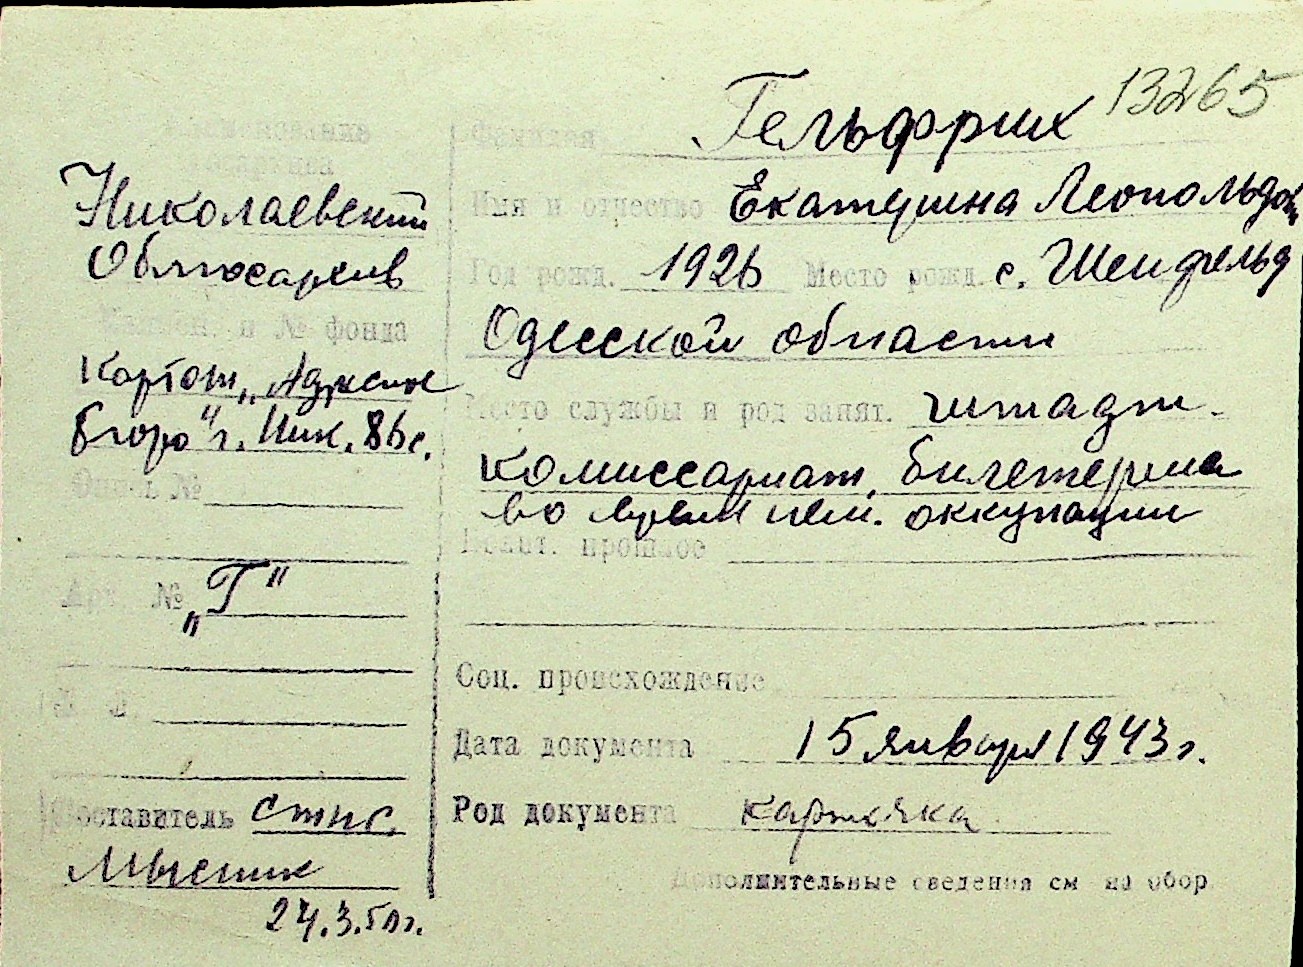 13265
Наименование
госархива
Николаевский
Облгосархив
Наимен. и № фонда
Картот. „Адресное
бюро" г. Ник. 86с.
Опись №
Арх. № „Г"
Л. Л.
Составитель ст.н.с.
Мысник
24.3.50г.
Фамилия Гельфрих
Имя и отчество Екатерина Леопольдовн
Год рожд. 1926 Место рожд. с. Шенфельд
Одесской области
Место службы и род занят. штадт-
комиссариат, билетерша
во время нем. оккупации
Полит. прошлое
Соц. происхождение
Дата документа 15 января 1943 г.
Род документа карточка
Дополнительные сведения см на обор